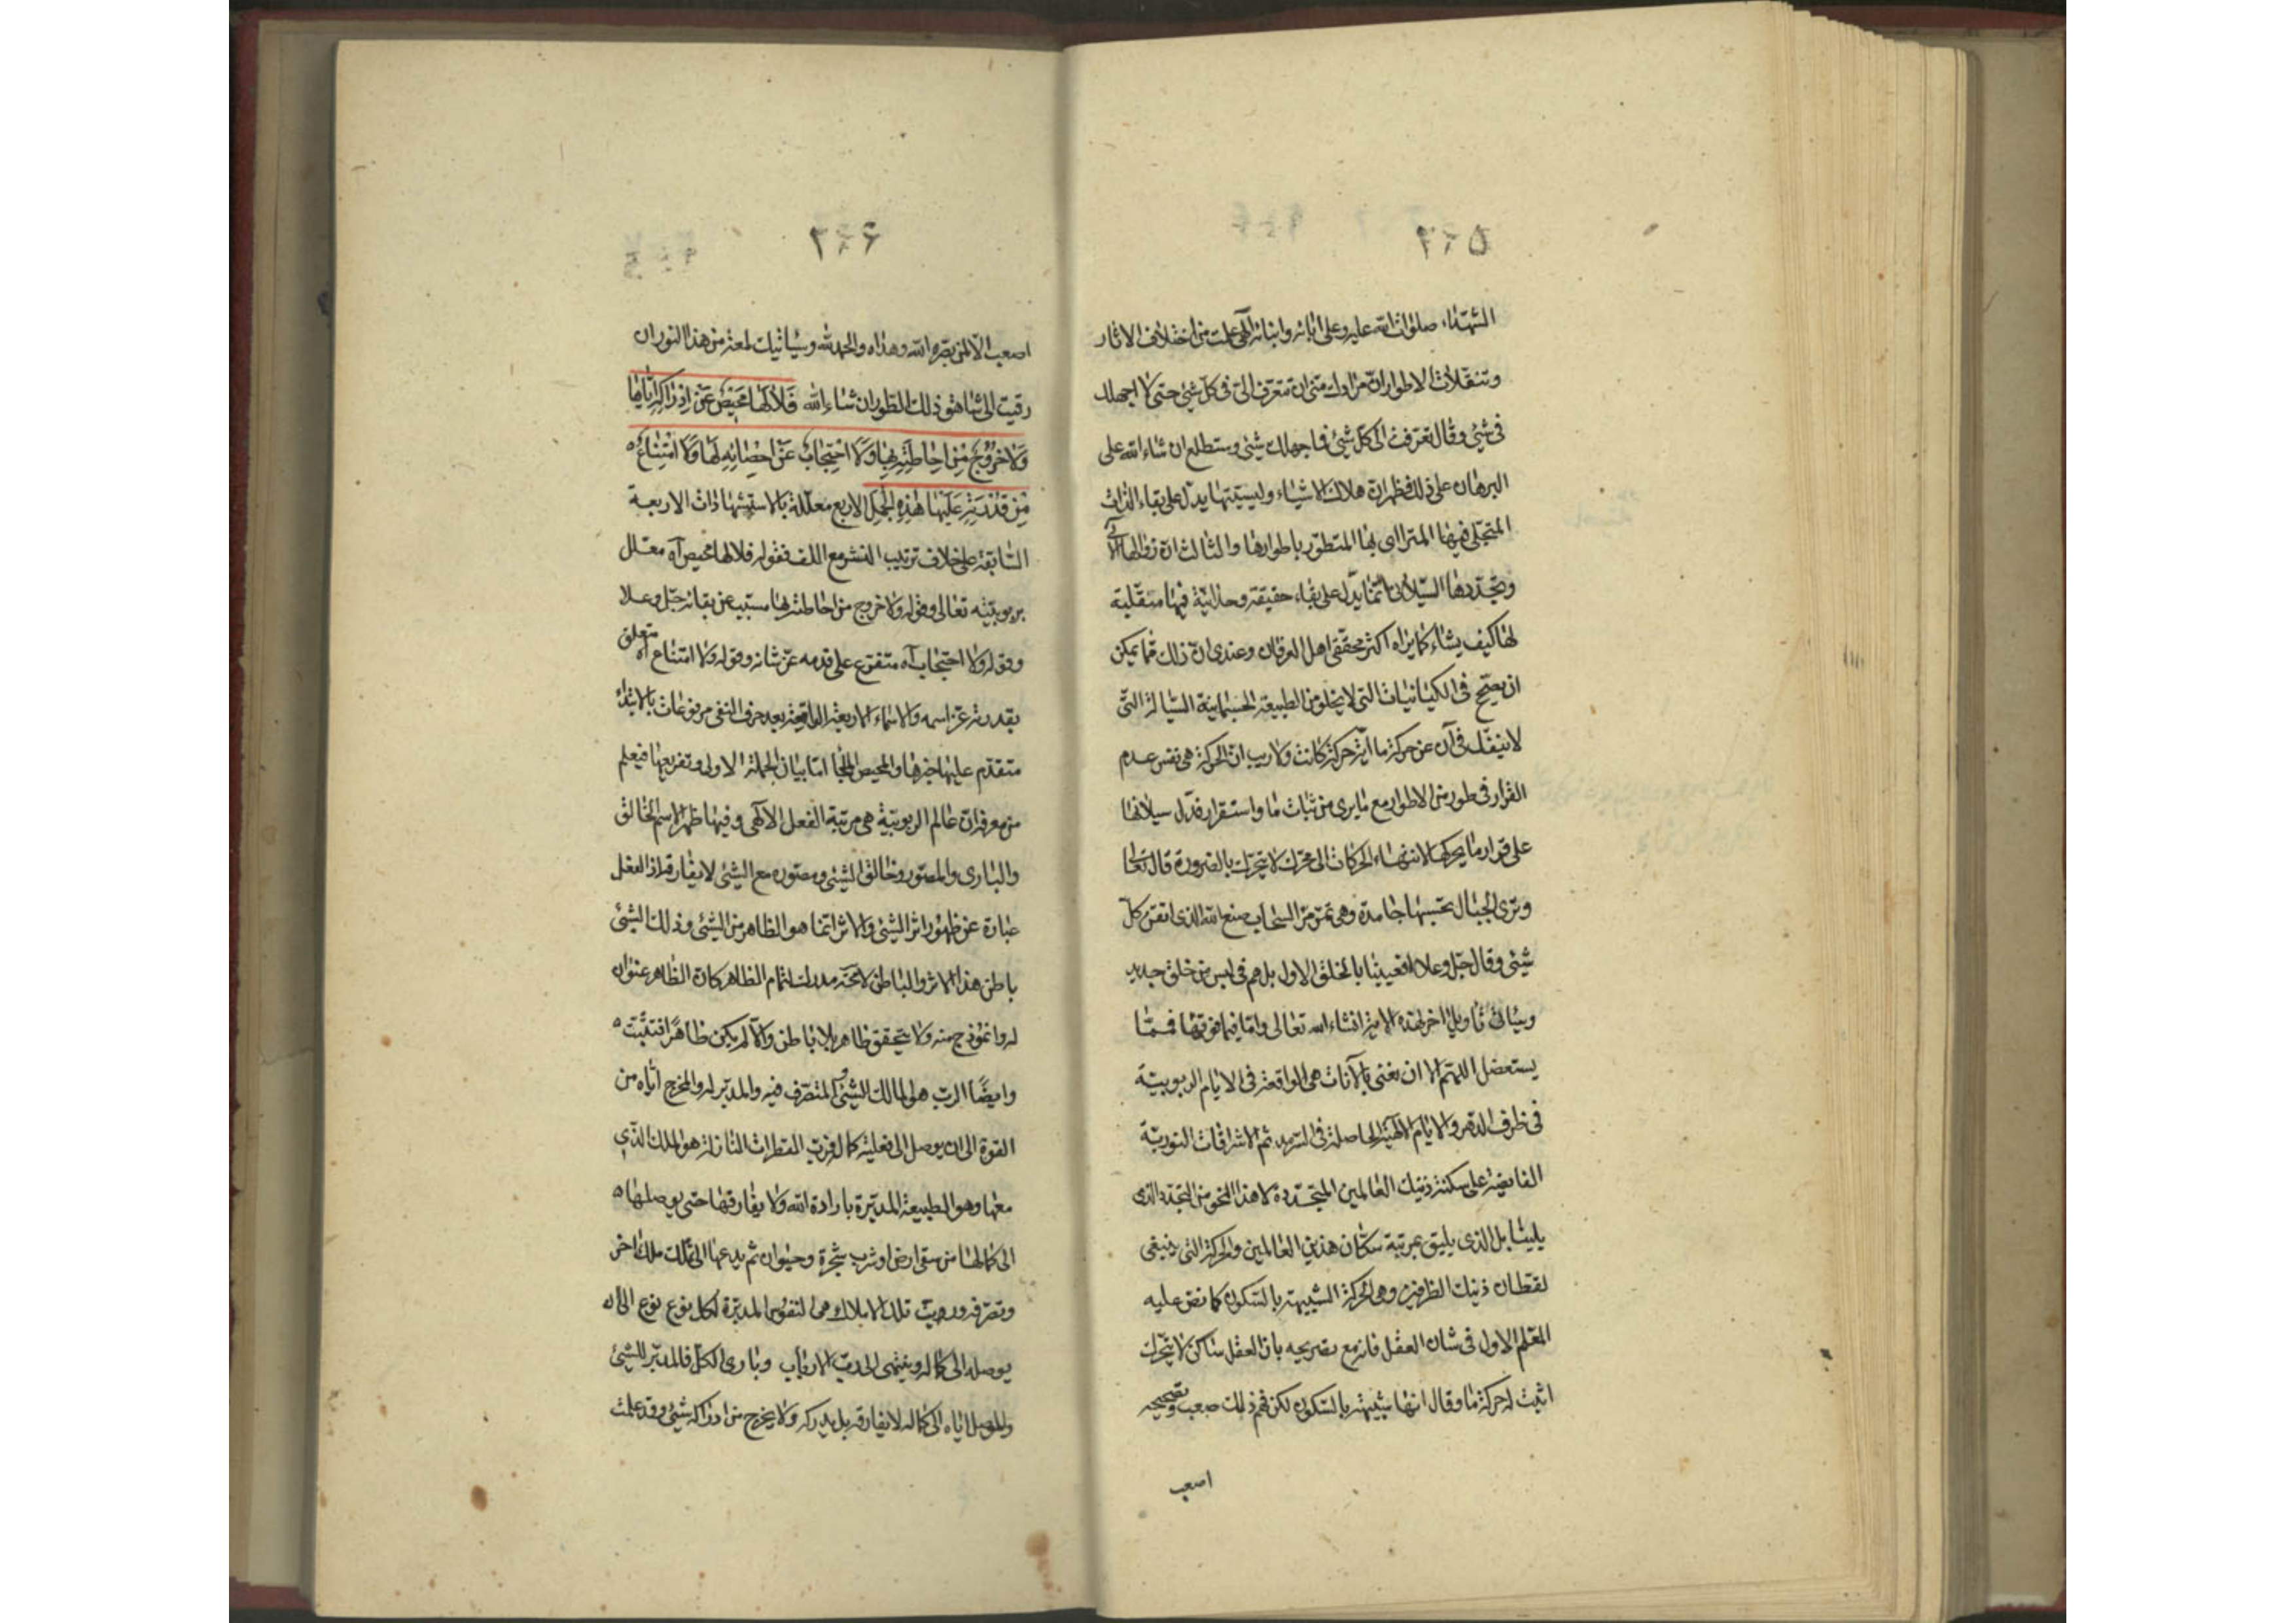 ٢٤٥
الشهداء صلوات الله عليه وعلى ابائه وابنائه الهى علمت من اختلاف الاثار
وتنقلات الاطوار ان مرادك منى ان تتعرف الى فى كل شيئ حتى لا اجهلك
فى شيئ وقال تعرفت الى كل شيئ فما جهلك شيئ وستطلع ان شاء الله على
البرهان على ذلك فظهر ان هلاك الاشياء وليسيتها يدل على بقاء الذات
المتجلى فيها المترااى بها المتطور باطوارها والثالث ان زوالها
وتجددها السيلانى انما يدل على بقاء حقيقة وحدانية فيها متقلبة
لها كيف يشاء كما يراه اكثر محققى اهل العرفان وعندى ان ذلك مما يمكن
ان يصح فى الكيانيات التى لا يخلو من الطبيعة الجسمانية السيالة التى
لا ينفك فى آن عن حركة ما اية حركة كانت ولا ريب ان الحركة هى نفس عدم
القرار فى طور من الاطوار مع ما يرى من ثبات ما واستقرار فدل سيلانها
على قرار ما يحركها لانتهاء الحركات الى محرك لا يتحرك بالضرورة قال تعالى
وترى الجبال تحسبها جامدة وهى تمر مر السحاب صنع الله الذى اتقن كل
شيئ وقال جل وعلا افعيينا بالخلق الاول بل هم فى لبس من خلق جديد
وسياتى تاويل اخر لهذه الاية انشاء الله تعالى واما فيما فوقها فمما
يستعضل اللهم الا ان نعنى بالآنات هى الواقعة فى الايام الربوبية
فى ظرف الدهر والايام الالهية الحاصلة فى السرمد ثم الاشراقات النورية
الفايضة على سكنة ذينك العالمين المتجددة لا هذا النحو من التجدد الذى
يلينا بل الذى يليق بمرتبة سكان هذين العالمين والحركة التى ينبغى
لقطان ذينك الظرفين وهى الحركة الشبيهة بالسكون كما نص عليه
المعلم الاول فى شان العقل فانه مع تصريحه بان العقل ساكن لا يتحرك
اثبت له حركة ما وقال انها شبيهة بالسكون لكن فهم ذلك صعب وتصحيحه
اصعب
٢٤٦
اصعب الا لمن بصره الله وهداه والحمد لله وسياتيك لمعة من هذا النور ان
رقيت الى شاهق ذلك الطور ان شاء الله فلا لها محيص عن ادراكه اياها
ولا خروج من احاطته بها ولا احتجاب عن احصائه لها ولا امتناع
من قدرته عليها هذه الجمل الاربع معللة بالاستشهادات الاربعة
السابقة على خلاف ترتيب النشر مع اللف فقوله فلا لها محيص آه معلل
بربوبيته تعالى وقوله ولا خروج من احاطته بها مسبب عن بقائه جل وعلا
وقوله ولا احتجاب آه متفرع على قدمه عز شانه وقوله ولا امتناع آه متعلق
بقدرته عز اسمه والاسماء الاربعة الواقعة بعد حرف النفى مرفوعات بالابتداء
متقدم عليها خبرها والمحيص الملجا اما بيان الجملة الاولى وتفريعها فيعلم
من معرفة ان عالم الربوبية هى مرتبة الفعل الالهى وفيها ظهر الاسم الخالق
والبارى والمصور وخالق الشيئ ومصوره مع الشيئ لا يفارقه اذ الفعل
عبارة عن ظهور اثر الشيئ والاثر انما هو الظاهر من الشيئ وذلك الشيئ
باطن هذا الاثر والباطن لا محة مدرك لتمام الظاهر كان الظاهر عنوان
له وانموذج منه ولا يتحقق ظاهر بلا باطن والا لم يكن ظاهرا فتثبت
وايضا الرب هو المالك للشيئ والمتصرف فيه والمدبر له والمخرج اياه من
القوة الى ان يوصل الى فعلية كماله فرب القطرات النازلة هو الملك الذى
معها وهو الطبيعة المدبرة بارادة الله ولا يفارقها حتى يوصلها
الى كمالها من سقى ارض او شرب شجرة وحيوان ثم يدعها الى ملك اخر
وتصرفه ورب تلك الاملاك هى النفوس المدبرة لكل نوع نوع الى ان
يوصله الى كماله وينتهى الى رب الارباب وبارى الكل فالمدبر للشيئ
والموصل اياه الى كماله لا يفارقه بل يدركه ولا يخرج من ادراكه شيئ وقد علمت